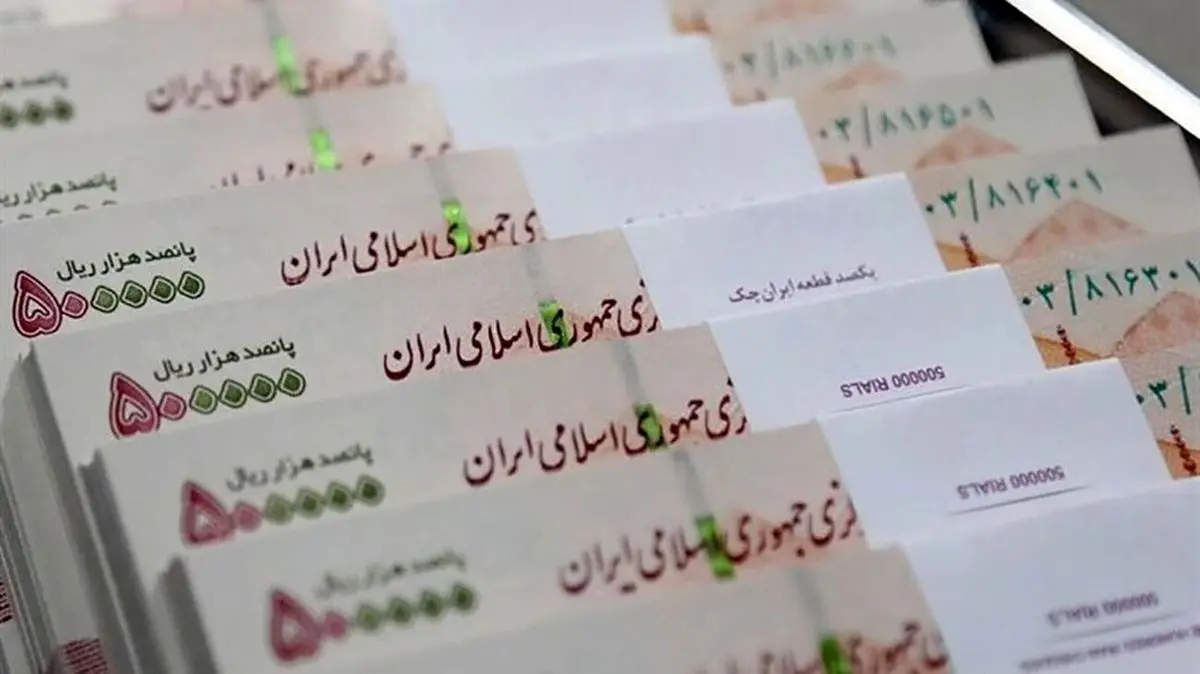 جمهوری اسلامی ایران
۰۳/۸۱۶۶۰۱
۰۳/۸۱۶۵۰۱
پانصد هزار ریال
۰۳/۸۱۶۴۰۱
جمهوری اسلامی ایران
پانصد هزار ریال
۵۰۰۰۰۰
یکصد قطعه ایران چک
۰۳/۸۱۶۳۰۱
جمهوری اسلامی ایران
پانصد هزار ریال
۵۰۰۰۰۰
500000 RIALS
۰۳/
جمهوری اسلامی ایران
پانصد هزار ریال
۵۰۰۰۰۰
500000 RIALS
جمهوری اسلامی ایران
پانصد هزار ریال
۵۰۰۰۰۰
500000 RIALS
جمهوری